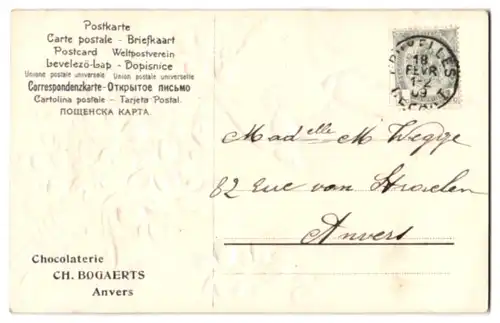 Postkarte
Carte postale - Briefkaart
Postcard Weltpostverein
Levelező-Lap - Dopisnice
Unione postale universale Union postale universelle
Correspondenzkarte - Открытое письмо
Cartolina postale - Tarjeta Postal.
ПОЩЕНСКА КАРТА.
18
FEVR
12
09
Mad elle M Wegge
82 Rue van Straelen
Anvers
Chocolaterie
CH. BOGAERTS
Anvers